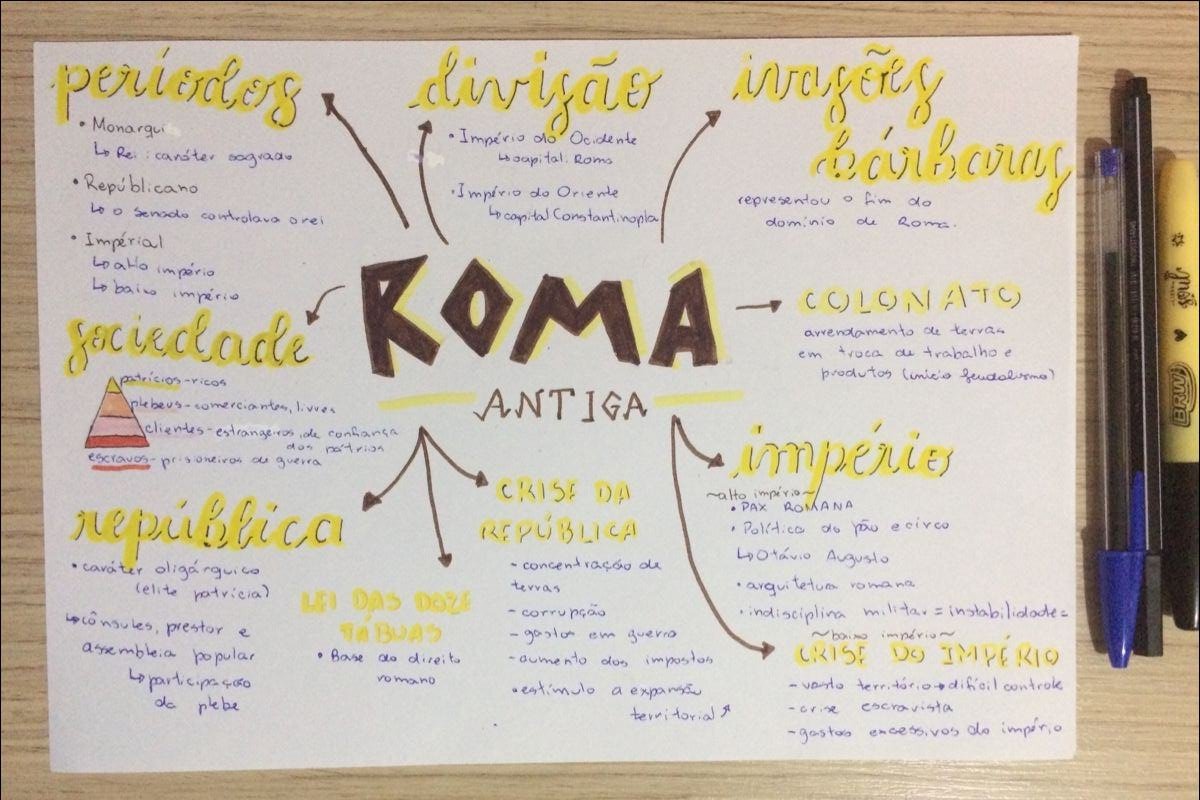 períodos
• Monarqui
↳ Rei: caráter sagrado
• Républicano
↳ o senado controlava o rei
• Impérial
↳ alto império
↳ baixo império
divisão
• Império do Ocidente
↳ capital: Roma
• Império do Oriente
↳ capital Constantinopla
ivasões
bárbaras
representou o fim do
domínio de Roma.
ROMA
ANTIGA
COLONATO
arrendamento de terras
em troca de trabalho e
produtos (início feudalismo)
sociedade
patrícios-ricos
plebeus-comerciantes, livres
clientes-estrangeiros, de confiança
dos pátrios
escravos-prisioneiros de guerra
república
• caráter oligárquico
(elite patrícia)
↳ cônsules, prestor e
assembleia popular
↳ participação
da plebe
LEI DAS DOZE
TÁBUAS
• Base do direito
romano
CRISE DA
REPÚBLICA
- concentração de
terras
- corrupção
- gastos em guerra
- aumento dos impostos
• estímulo a expansão
territorial ↗
império
~alto império~
• PAX ROMANA
• Política do pão e circo
↳ Otávio Augusto
• arquitetura romana
• indisciplina militar = instabilidade =
~baixo império~
CRISE DO IMPÉRIO
- vasto território → difícil controle
- crise escravista
- gastos excessivos do império
BRW